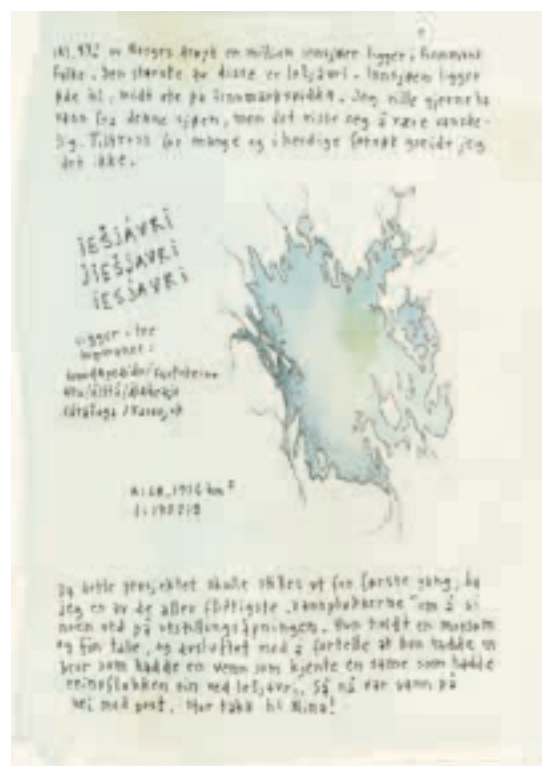 av Norges drøyt en million innsjøer ligger i Finnmark
fylke. Den største av disse er Iešjávri. Innsjøen ligger
midt ute på Finnmarksvidda. Jeg ville gjerne ha
vann fra denne sjøen, men det viste seg å være vanske-
lig. Tiltross for mange og iherdige forsøk greide jeg
det ikke.
IEŠJÁVRI
JIEŠJAVRI
IESJAVRI
ligger i tre
kommuner:
/Kautokeino
/Karasjok
Da dette prosjektet skulle stilles ut for første gang, ba
jeg en av de aller flittigste "vannplukkerne" om å si
noen ord på utstillingsåpningen. Hun holdt en morsom
og fin tale, og avsluttet med å fortelle at hun hadde en
bror som hadde en venn som kjente en same som hadde
reinsflokken sin ved Iešjávri. Så nå var vann på
vei med post. Hurtakk til Nina!